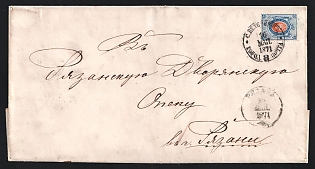 Въ
Рязанскую Дворянскую
Опеку
въ Рязани
1871
1871